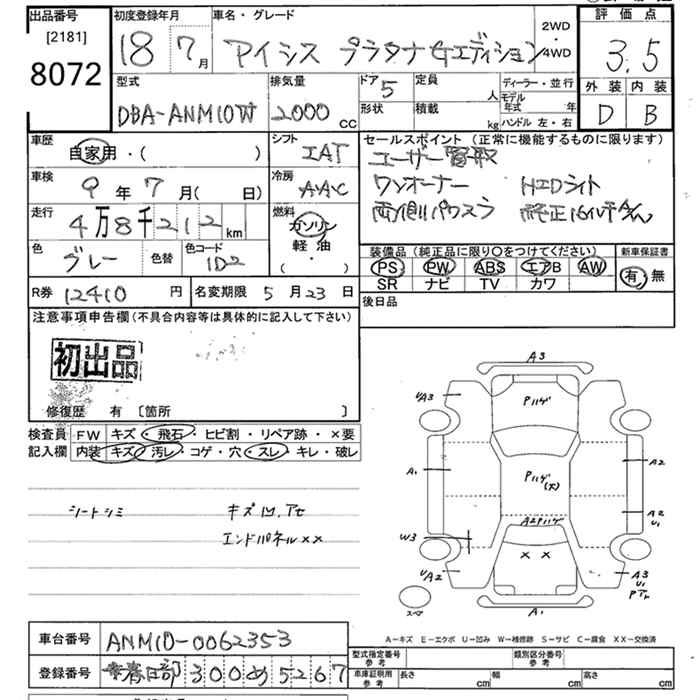 出品番号
[2181]
8072
初度登録年月
18 7月
車名・グレード
アイシス プラタナ Gエディション
2WD
・
4WD
評価点
3.5
外装 内装
D B
型式
DBA-ANM10W
排気量
2000 cc
ドア
5
形状
定員
人
積載
kg
ディーラー・並行
モデル年式 年
ハンドル 左・右
車歴
自家用・( )
シフト
IAT
車検
9年7月( 日)
冷房
AAC
走行
4万8千212 km
燃料
ガソリン
軽油
( ・ )
色
グレー
色替
色コード
1D2
セールスポイント (正常に機能するものに限ります)
ユーザー買取
ワンオーナー HIDライト
両側パワスラ 純正16インチAW
装備品 (純正品に限り○をつけてください)
PS PW ABS エアB AW
SR ナビ TV カワ
新車保証書
有・無
後日品
R券 12410 円
名変期限 5月23日
注意事項申告欄 (不具合内容等は具体的に記入して下さい)
初出品
修復歴 有 〔箇所 〕
検査員記入欄
FW キズ・飛石・ヒビ割・リペア跡・×要
内装 キズ・汚レ・コゲ・穴・スレ・キレ・破レ
シートシミ キズ凹.アセ
エンドパネル××
A3
UA3
Pハゲ
A1
Pハゲ(大)
A2
A2Pハゲ
A2
U1
W3
× ×
UA2
A3
U1
スペア
A1
A-キズ E-エクボ U-凹み W-補修跡 S-サビ C-腐食 XX-交換済
車台番号 ANM10-0062353
登録番号 春日部 300 め 5267
型式指定番号 参考
類別区分番号 参考
車庫証明用 参考
長さ cm 幅 cm 高さ cm